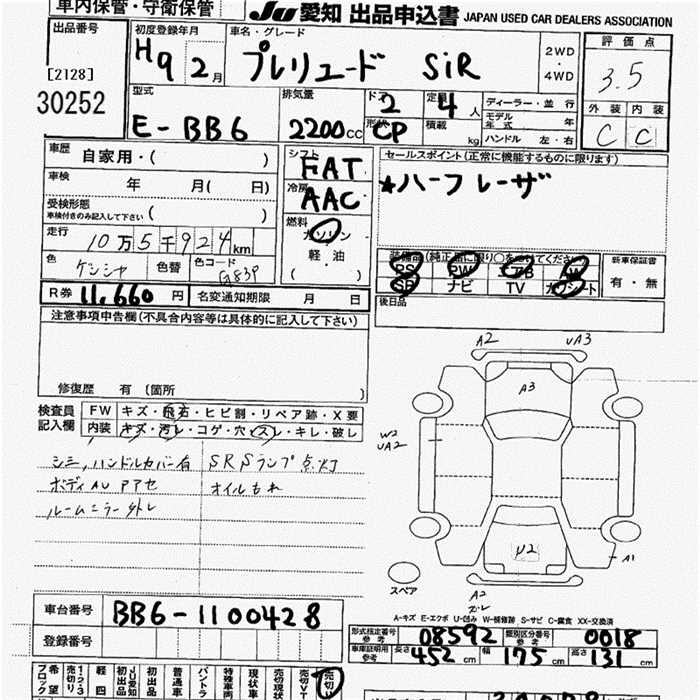 車内保管・守衛保管
JU 愛知 出品申込書 JAPAN USED CAR DEALERS ASSOCIATION
出品番号
[2128]
30252
初度登録年月
H9 2月
車名・グレード
プレリュード SiR
2WD・4WD
評価点
3.5
外装 内装
C C
型式
E-BB6
排気量
2200cc
ドア
2
定員
4人
形状
CP
積載 kg
ディーラー・並行
モデル年式 年
ハンドル 左・右
車歴 自家用・( )
車検 年 月( 日)
受検形態
車検付きのみ記入して下さい ( )
走行 10万5千924km
色 ケンシャ 色替 色コード G83P
R券 11,660円 名変通知期限 月 日
シフト FAT
冷房 AAC
燃料
ガソリン
軽・油
( )
セールスポイント(正常に機能するものに限ります)
★ハーフレーザ
装備品(純正品に限り○をつけてください)
PS PW AB AW
SR ナビ TV カワシート
新車保証書
有・無
後日品
注意事項申告欄(不具合内容等は具体的に記入して下さい)
修復歴 有 〔箇所 〕
検査員記入欄
FW キズ・飛石・ヒビ割・リペア跡・X要
内装 キズ・汚レ・コゲ・穴・スレ・キレ・破レ
シミ,ハンドルカバー有 SRSランプ点灯
ボディAU アアセ オイルもれ
ルームミラー外レ
A2 UA3
A3
W2
UA2
U2
A1
A2
ズレ
スペア
A-キズ E-エクボ U-凹み W-補修跡 S-サビ C-腐食 XX-交換済
車台番号 BB6-1100428
登録番号
形式指定番号 参考 08592 類別区分番号 参考 0018
車庫証明用 参考 長さ 452 幅 175 高さ 131 cm
希望ブロック
1・2・3
売切り
軽四
JU愛知
初出品
初出品
普通車
バントラ
特殊車両
現状車
売切現状
売切VT
売切